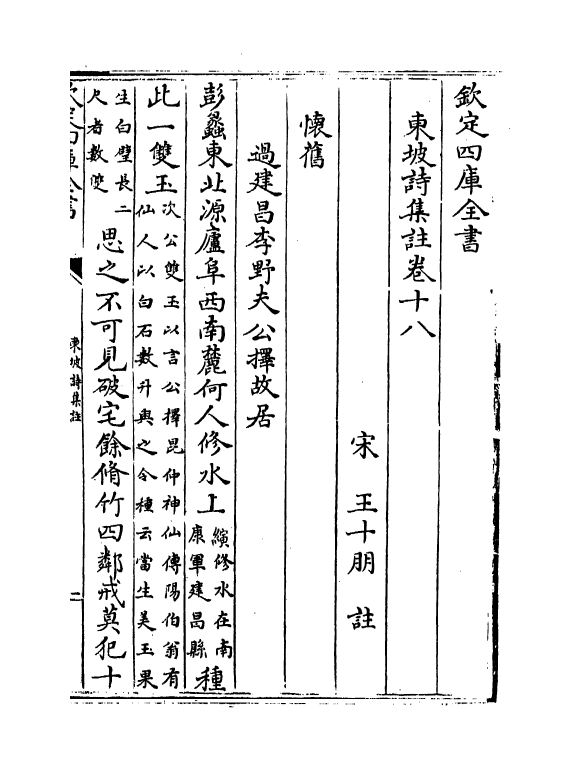 欽定四庫全書
東坡詩集註卷十八
宋 王十朋 註
懷舊
過建昌李野夫公擇故居
彭蠡東北源廬阜西南麓何人修水上縯修水在南康軍建昌縣種
此一雙玉次公雙玉以言公擇昆仲神仙傳陽伯翁有仙人以白石數升與之令種云當生美玉果
生白璧長二尺者數雙思之不可見破宅餘脩竹四鄰戒莫犯十
東坡詩集註